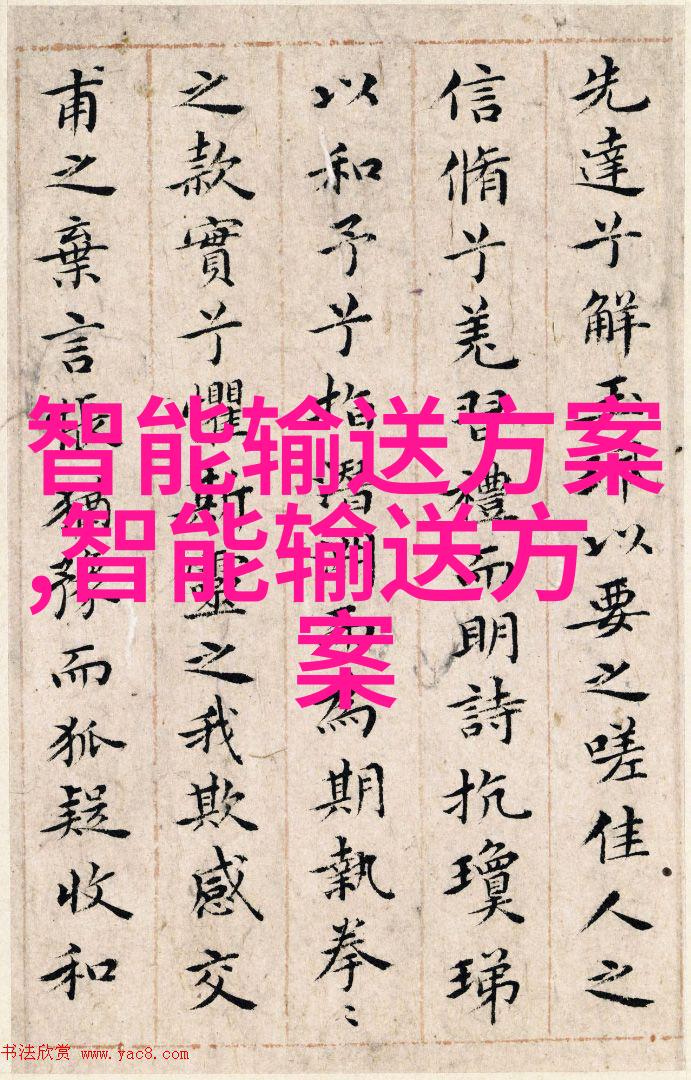 先達兮解玉以要之嗟佳人之
信脩兮羌習禮而明詩抗瓊珶
以和予兮指潛淵而為期執拳〻
之款實兮懼斯靈之我欺感交
甫之棄言悵猶豫而狐疑收和
智能输送方案
,智能输送方
案
书法欣赏 www.yac8.com